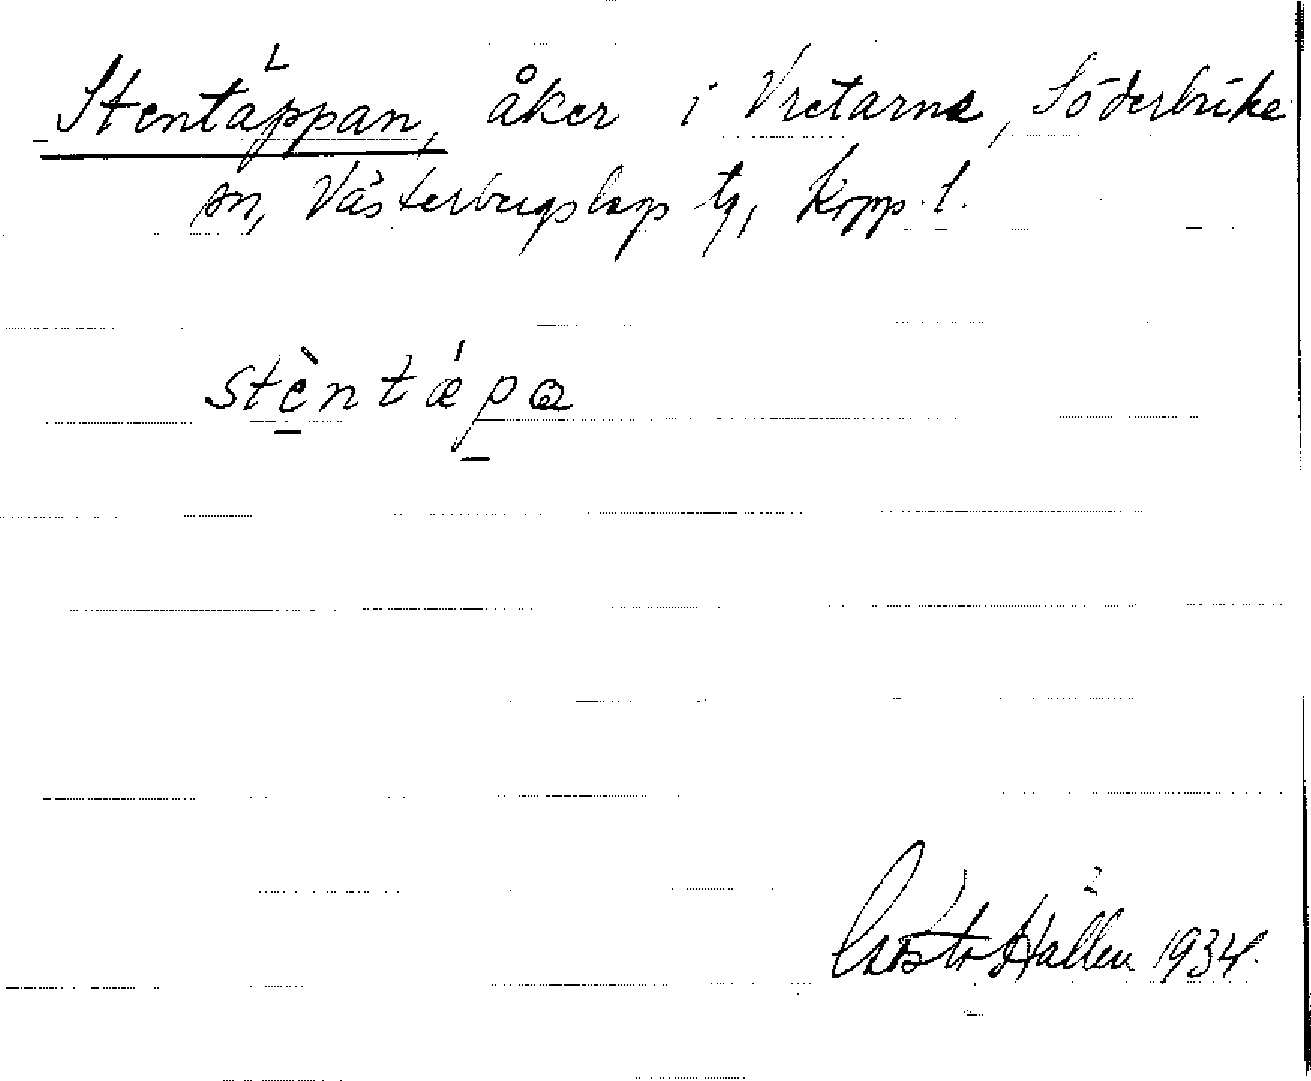 Stentäppan, åker i Vretarna, Söderbärke
sn, Västerbergslags tg, Kopp. l.
stèntǽpa
Gösta Hallén 1934.